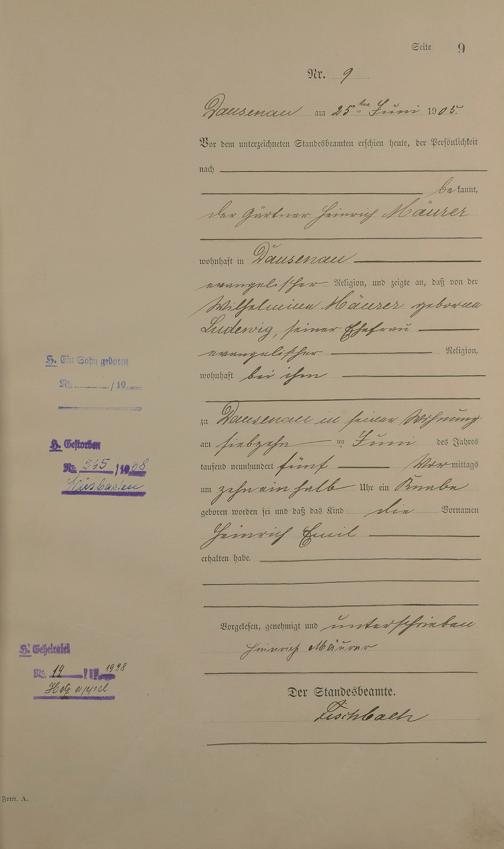 Seite 9
Nr. 9
Dausenau am 25ten Juni 1905.
Vor dem unterzeichneten Standesbeamten erschien heute, der Persönlichkeit
nach
bekannt,
der Gärtner Heinrich Mäurer
wohnhaft in Dausenau
evangelischer Religion, und zeigte an, daß von der
Wilhelmine Mäurer geborene
Ludewig, seiner Ehefrau
evangelischer Religion,
wohnhaft bei ihm
zu Dausenau in seiner Wohnung
am siebzehn ten Juni des Jahres
tausend neunhundert fünf Vor mittags
um zehn ein halb Uhr ein Knabe
geboren worden sei und daß das Kind die Vornamen
Heinrich Emil
erhalten habe.
Vorgelesen, genehmigt und unterschrieben
Heinrich Mäurer
Der Standesbeamte.
Fischbach
H. Ein Sohn geboren
Nr. /19
H. Gestorben
Nr. /19
Wiesbaden
H. Geheiratet
Nr. 19
Form. A.